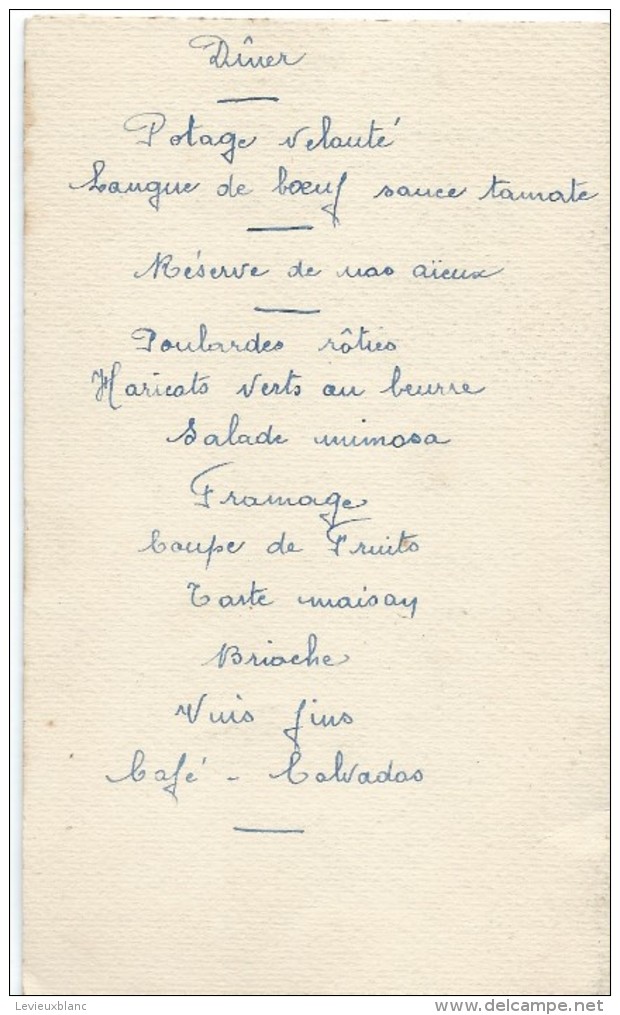 Dîner
Potage velouté
Langue de bœuf sauce tomate
Réserve de nos aïeux
Poulardes rôties
Haricots verts au beurre
Salade mimosa
Fromage
Coupe de Fruits
Tarte maison
Brioche
Vins fins
Café - Calvados
Levieuxblanc
www.delcampe.net